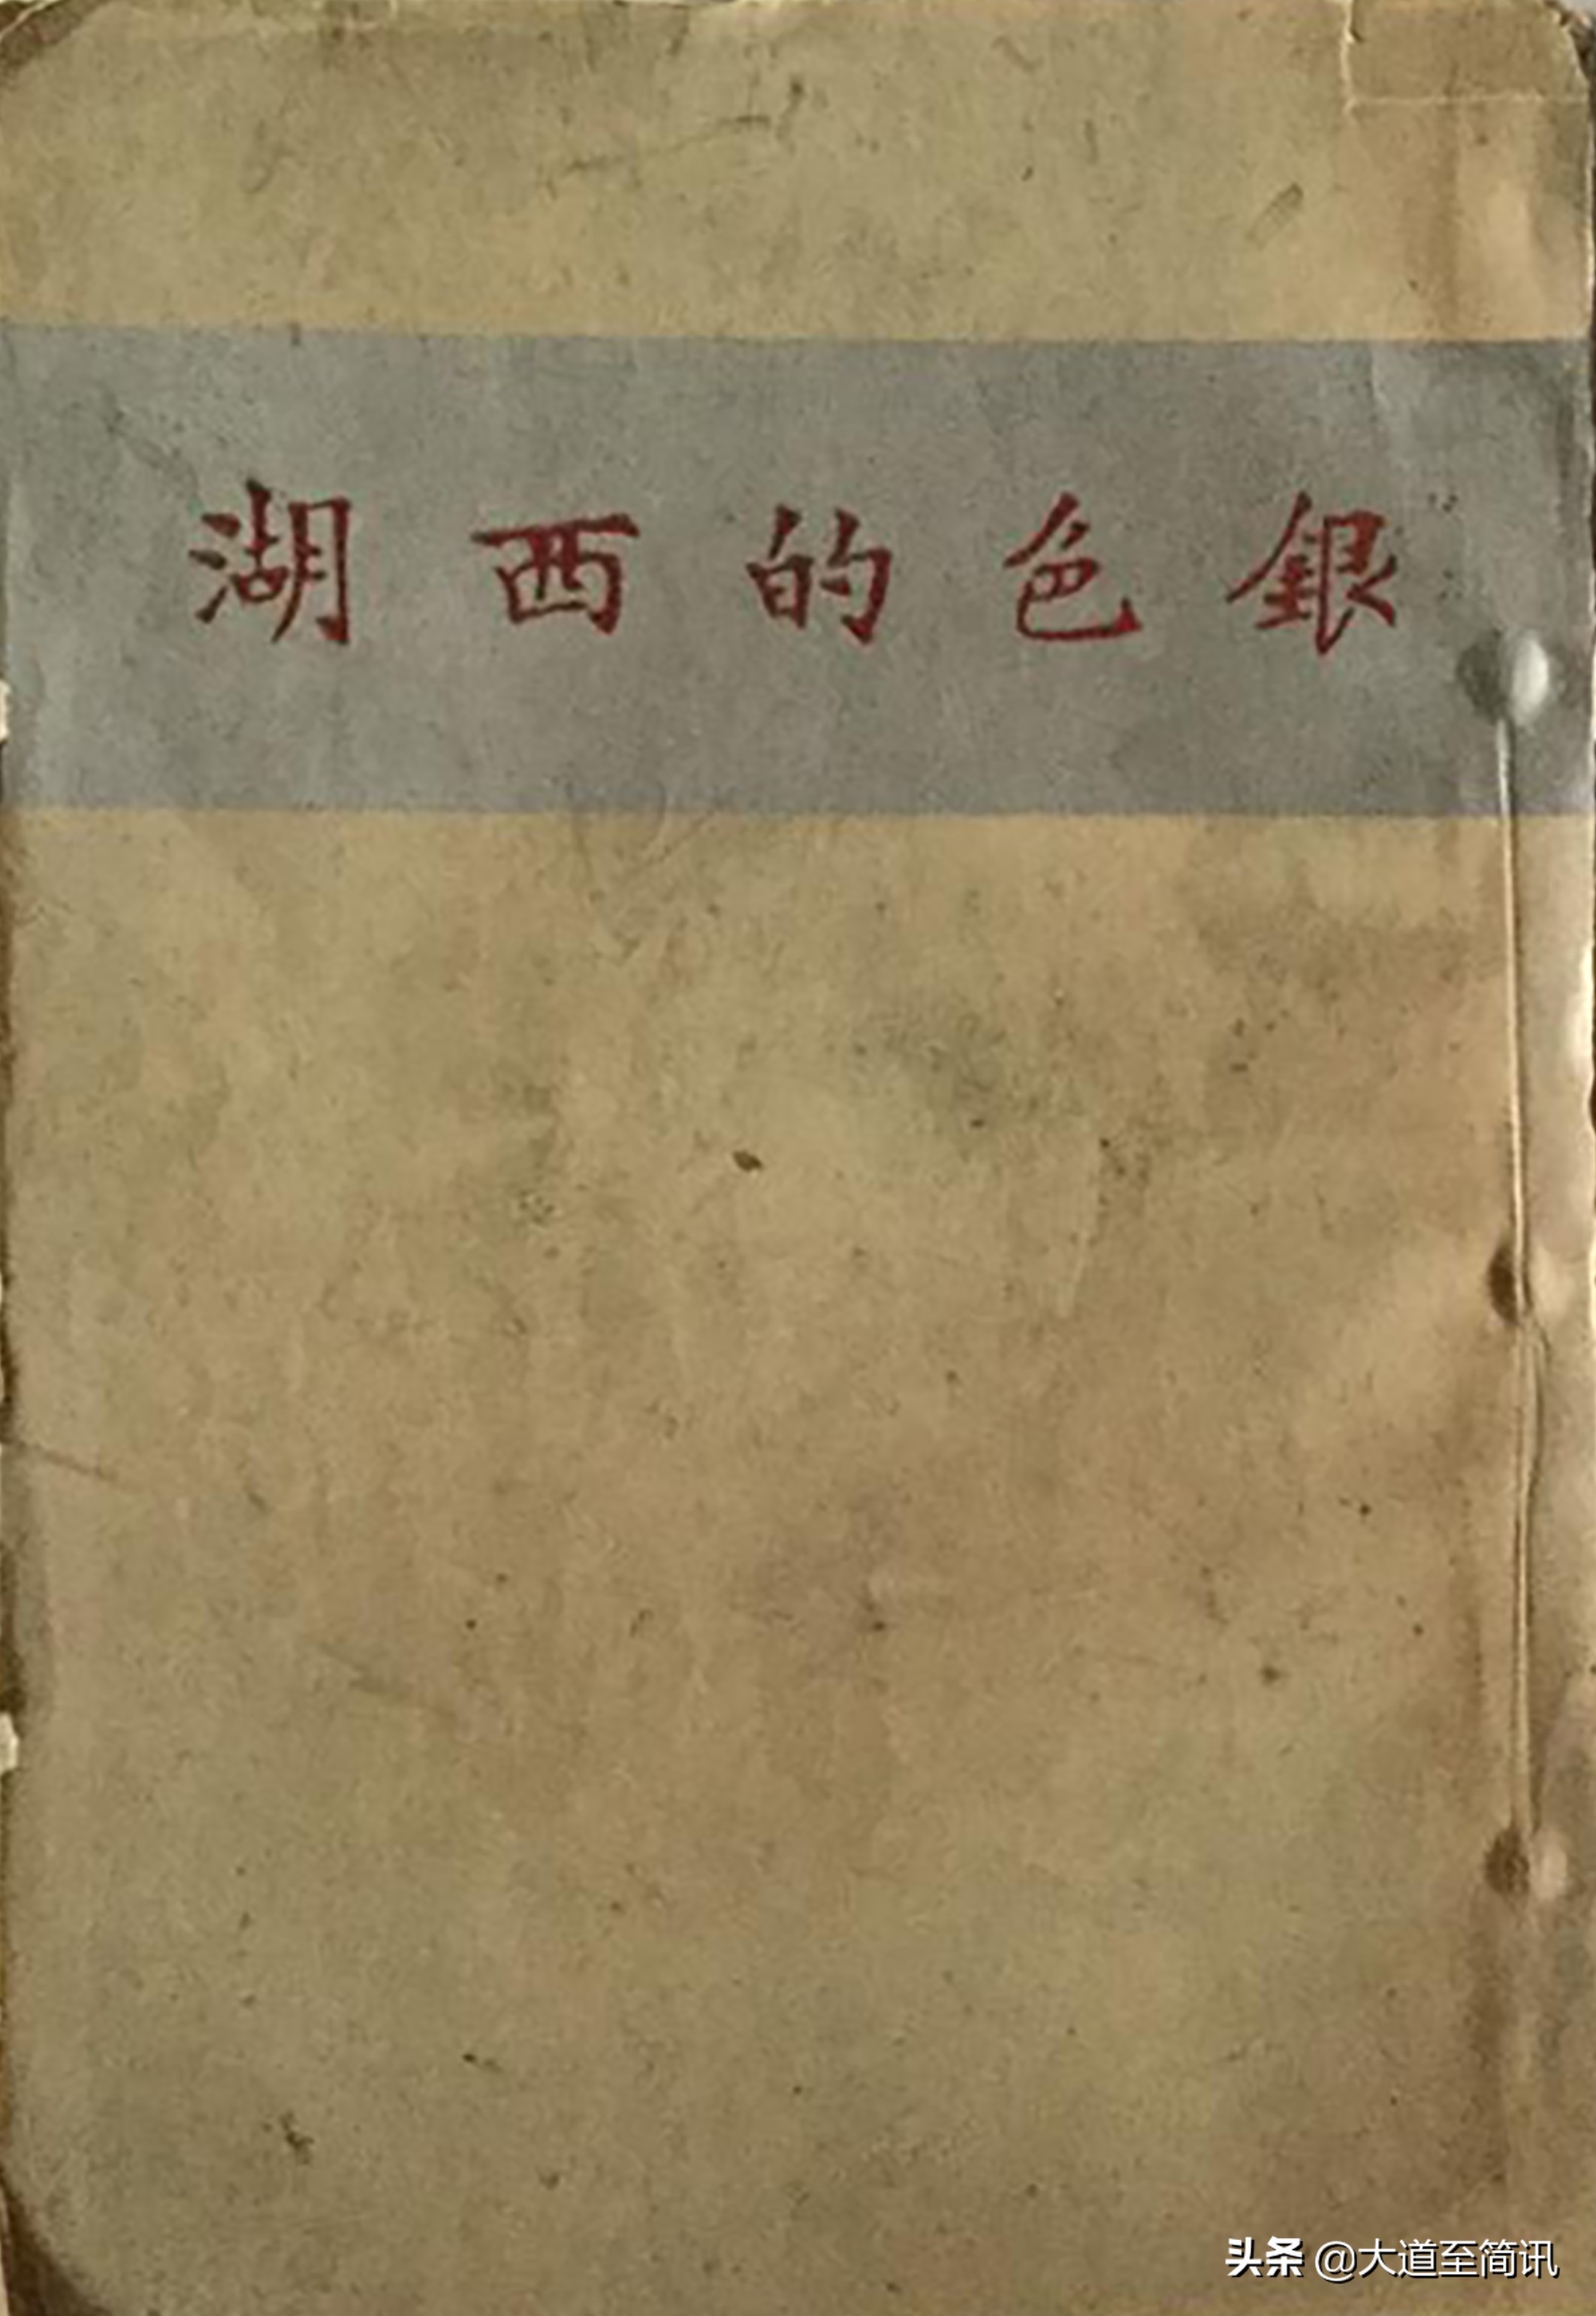 銀色的西湖
头条 @大道至简讯